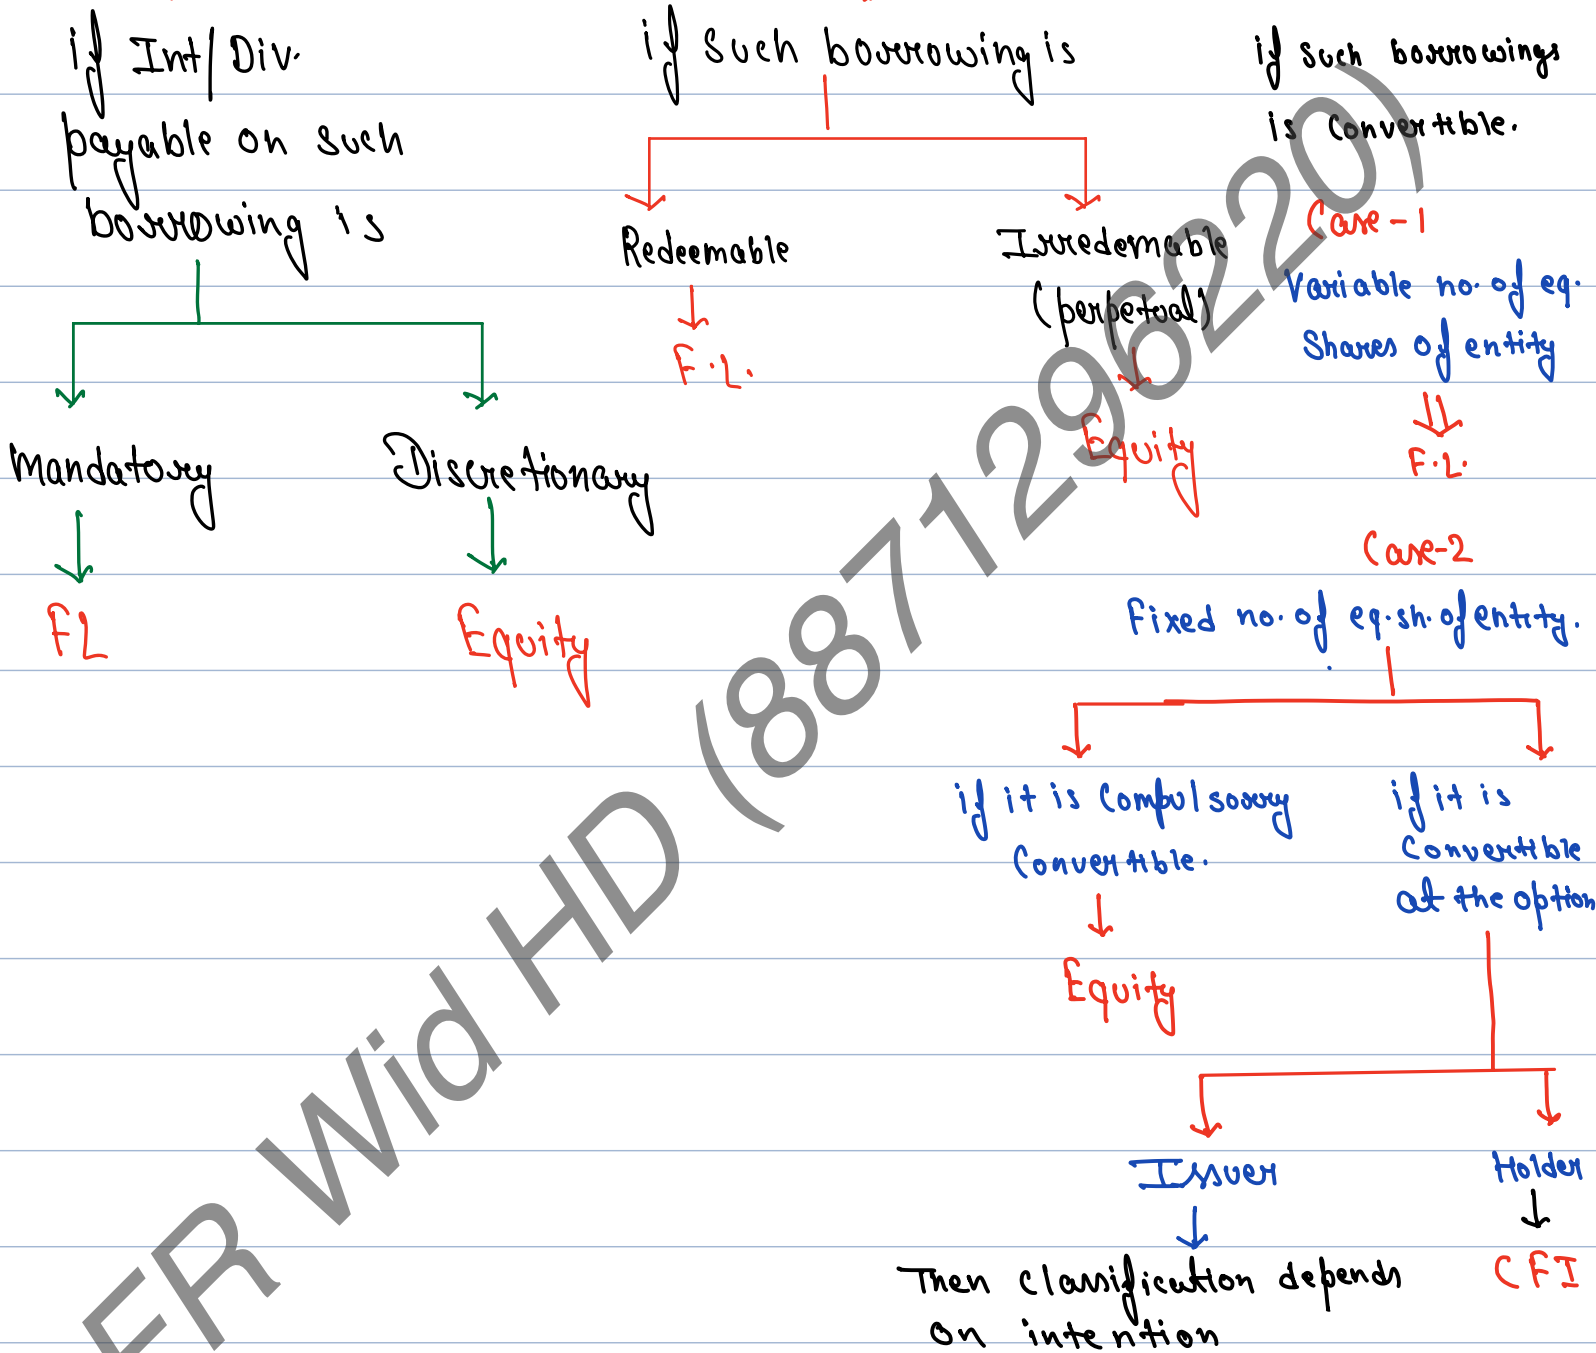 if Int/Div.
payable on such
borrowing is
Mandatory
FL
Discretionary
Equity
if such borrowing is
Redeemable
F.L.
Irredemable
(perpetual)
Equity
if such borrowings
is convertible.
Case-1
Variable no. of eq.
Shares of entity
F.L.
Case-2
Fixed no. of eq. sh. of entity.
if it is Compulsory
Convertible.
Equity
if it is
Convertible
at the option
Issuer
Then classification depends
on intention
Holder
CFI
FR Wid HD (8871296220)